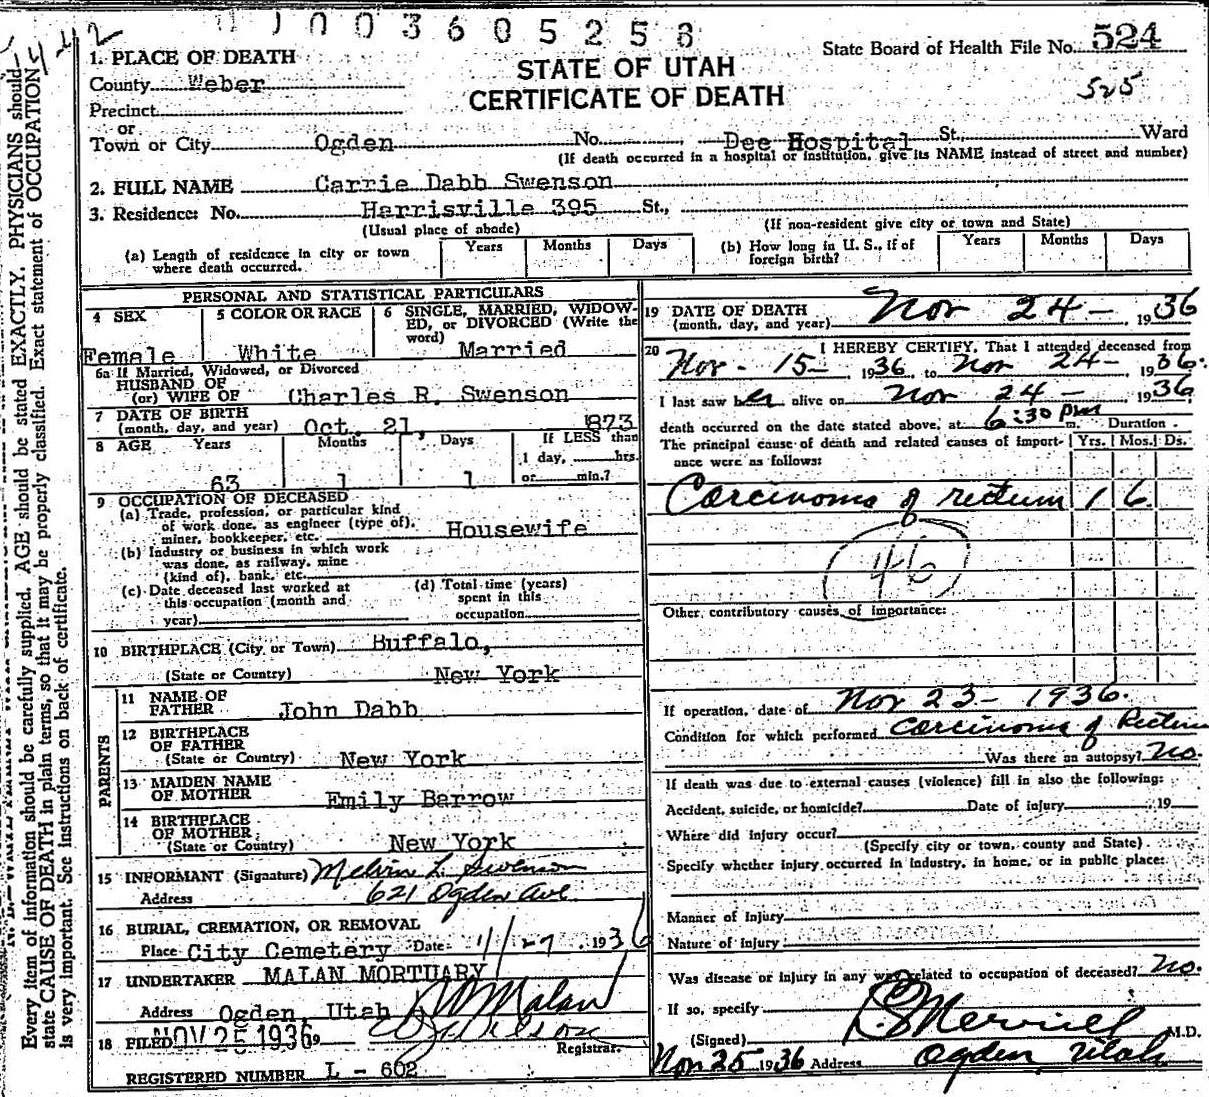 1003605258
State Board of Health File No. 524
525
442
STATE OF UTAH
CERTIFICATE OF DEATH
1. PLACE OF DEATH
County Weber
Precinct
or
Town or City Ogden No. Dee Hospital St. Ward
(If death occurred in a hospital or institution, give its NAME instead of street and number)
2. FULL NAME Carrie Dabb Swenson
3. Residence: No. Harrisville 395 St.,
(Usual place of abode) (If non-resident give city or town and State)
(a) Length of residence in city or town where death occurred. Years Months Days (b) How long in U. S., if of foreign birth? Years Months Days
PERSONAL AND STATISTICAL PARTICULARS
4 SEX Female
5 COLOR OR RACE White
6 SINGLE, MARRIED, WIDOW-
ED, or DIVORCED (Write the
word) Married
6a If Married, Widowed, or Divorced
HUSBAND OF
(or) WIFE OF Charles R. Swenson
7 DATE OF BIRTH
(month, day, and year) Oct. 21, 873
8 AGE Years Months Days If LESS than
1 day, hrs.
63 1 1 or min.?
9 OCCUPATION OF DECEASED
(a) Trade, profession, or particular kind
of work done, as engineer (type of),
miner, bookkeeper, etc. Housewife
(b) Industry or business in which work
was done, as railway, mine
(kind of), bank, etc.
(c) Date deceased last worked at
this occupation (month and
year)
(d) Total time (years)
spent in this
occupation
10 BIRTHPLACE (City or Town) Buffalo,
(State or Country) New York
PARENTS
11 NAME OF
FATHER John Dabb
12 BIRTHPLACE
OF FATHER
(State or Country) New York
13 MAIDEN NAME
OF MOTHER Emily Barrow
14 BIRTHPLACE
OF MOTHER
(State or Country) New York
15 INFORMANT (Signature) Melvin L. Swenson
Address 621 Ogden Ave
16 BURIAL, CREMATION, OR REMOVAL
Place City Cemetery Date 11/27, 1936
17 UNDERTAKER MALAN MORTUARY
Address Ogden, Utah Malan
18 FILED NOV 25 1936 19
Registrar.
REGISTERED NUMBER L - 602
19 DATE OF DEATH
(month, day, and year) Nov 24 - 1936
20 I HEREBY CERTIFY, That I attended deceased from
Nov - 15 - , 1936, to Nov 24 - , 1936.
I last saw her alive on Nov 24 - 1936
death occurred on the date stated above, at 6:30 pm m. Duration
The principal cause of death and related causes of import-
ance were as follows: Yrs. Mos. Ds.
Carcinoma of rectum 1 6
46
Other contributory causes of importance:
If operation, date of Nov 23 - 1936.
Condition for which performed Carcinoma of Rectum
Was there an autopsy? No.
If death was due to external causes (violence) fill in also the following:
Accident, suicide, or homicide? Date of injury 19
Where did injury occur?
(Specify city or town, county and State)
Specify whether injury occurred in industry, in home, or in public place:
Manner of Injury
Nature of injury
Was disease or injury in any way related to occupation of deceased? No.
If so, specify
(Signed) Merrill M.D.
Nov 25 1936 Address Ogden, Utah
Every item of information should be carefully supplied. AGE should be stated EXACTLY. PHYSICIANS should
state CAUSE OF DEATH in plain terms, so that it may be properly classified. Exact statement of OCCUPATION
is very important. See instructions on back of certificate.